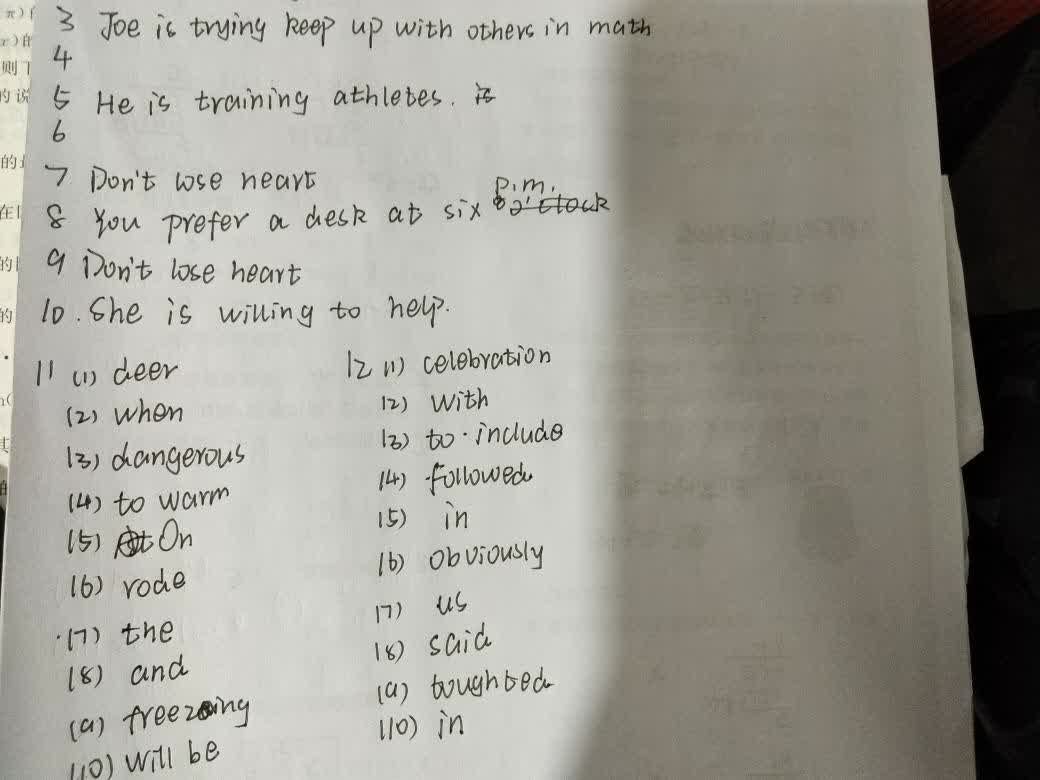 3 Joe is trying keep up with others in math
4
5 He is training athletes. is
6
7 Don't lose heart
p.m.
8 You prefer a desk at six o'clock
9 Don't lose heart
10. She is willing to help.
11 (1) deer
(2) when
(3) dangerous
(4) to warm
(5) At On
(6) rode
(7) the
(8) and
(9) freezing
(10) will be
12 (1) celebration
(2) with
(3) to include
(4) followed
(5) in
(6) obviously
(7) us
(8) said
(9) toughted
(10) in
π)
则下
的说
的
在
的
的
其